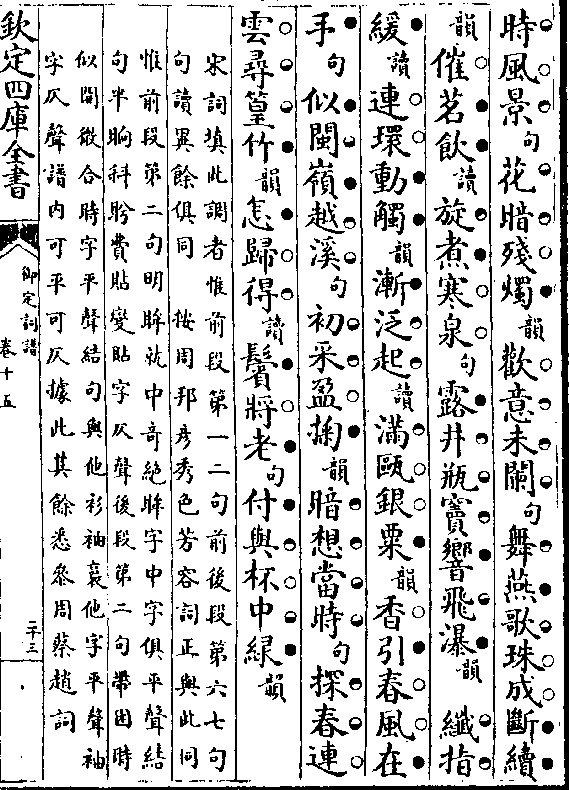 時風景句花暗殘燭韻歡意未闌句舞燕歌珠成斷續
韻催茗飲讀旋煮寒泉句露井瓶竇響飛瀑韻 纖指
緩讀連環動觸韻漸泛起讀滿甌銀粟韻香引春風在
手句似閩嶺越溪句初采盈掬韻暗想當時句探春連
雲尋篁竹韻怎歸得讀鬢將老句付與杯中緑韻
宋詞填此調者惟前段第一二句前後段第六七句
句讀異餘俱同 按周邦彦秀色芳容詞正與此同
惟前段第二句明眸就中奇絶眸字中字俱平聲結
句半晌斜盻費貼燮貼字仄聲後段第二句帶困時
似開微合時字平聲結句與他衫袖裛他字平聲袖
字仄聲譜内可平可仄據此其餘悉叅周蔡趙詞
欽定四庫全書
御定詞譜
卷十五
二十三